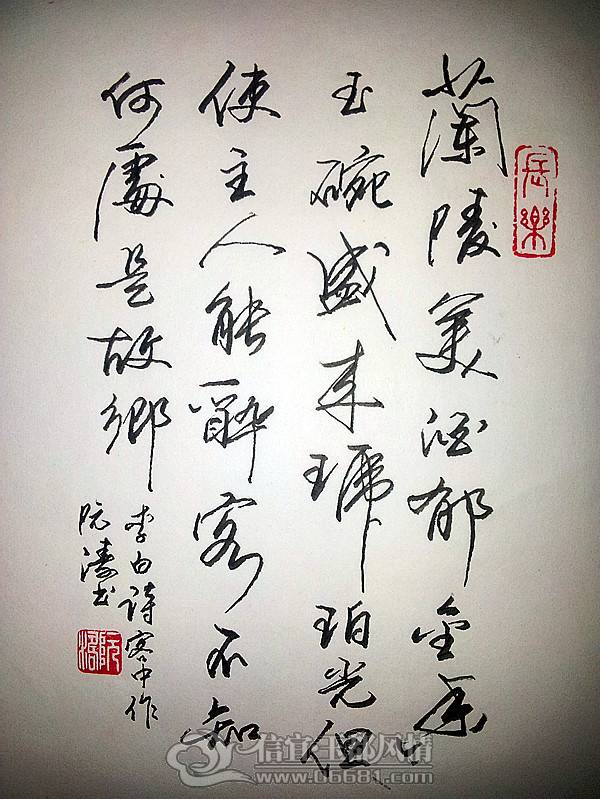 長樂
蘭陵美酒郁金香
玉碗盛来琥珀光但
使主人能醉客不知
何處是故鄉
李白詩客中作
阮濤书
阮濤
信宜玉都风情
www.06681.com